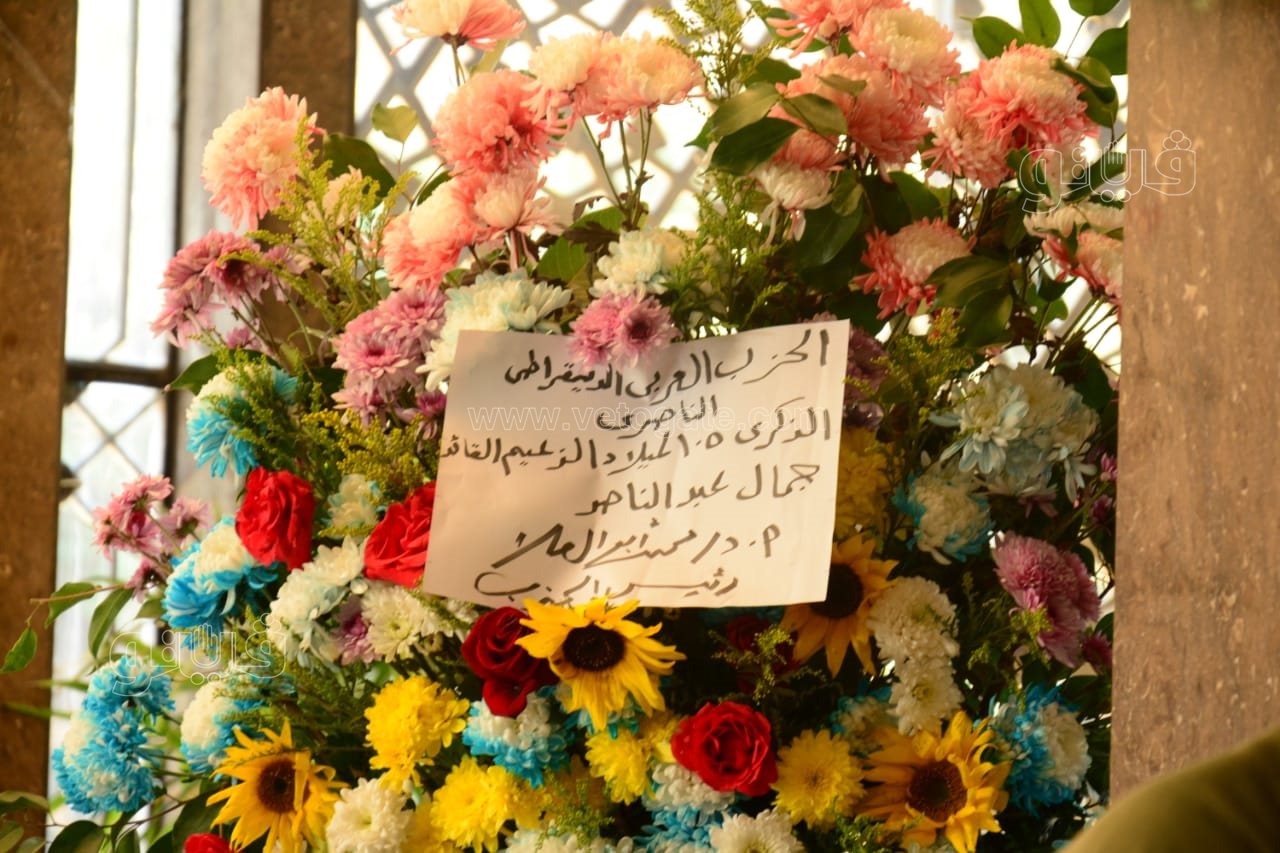 الحزب العربى الديمقراطى
الناصرى
الذكرى ١٠٥ لميلاد الزعيم القائد
جمال عبد الناصر
م. د/ محمد أبو العلا
رئيس الحزب
www.vetogate.com
ڤيتو
ڤيتو